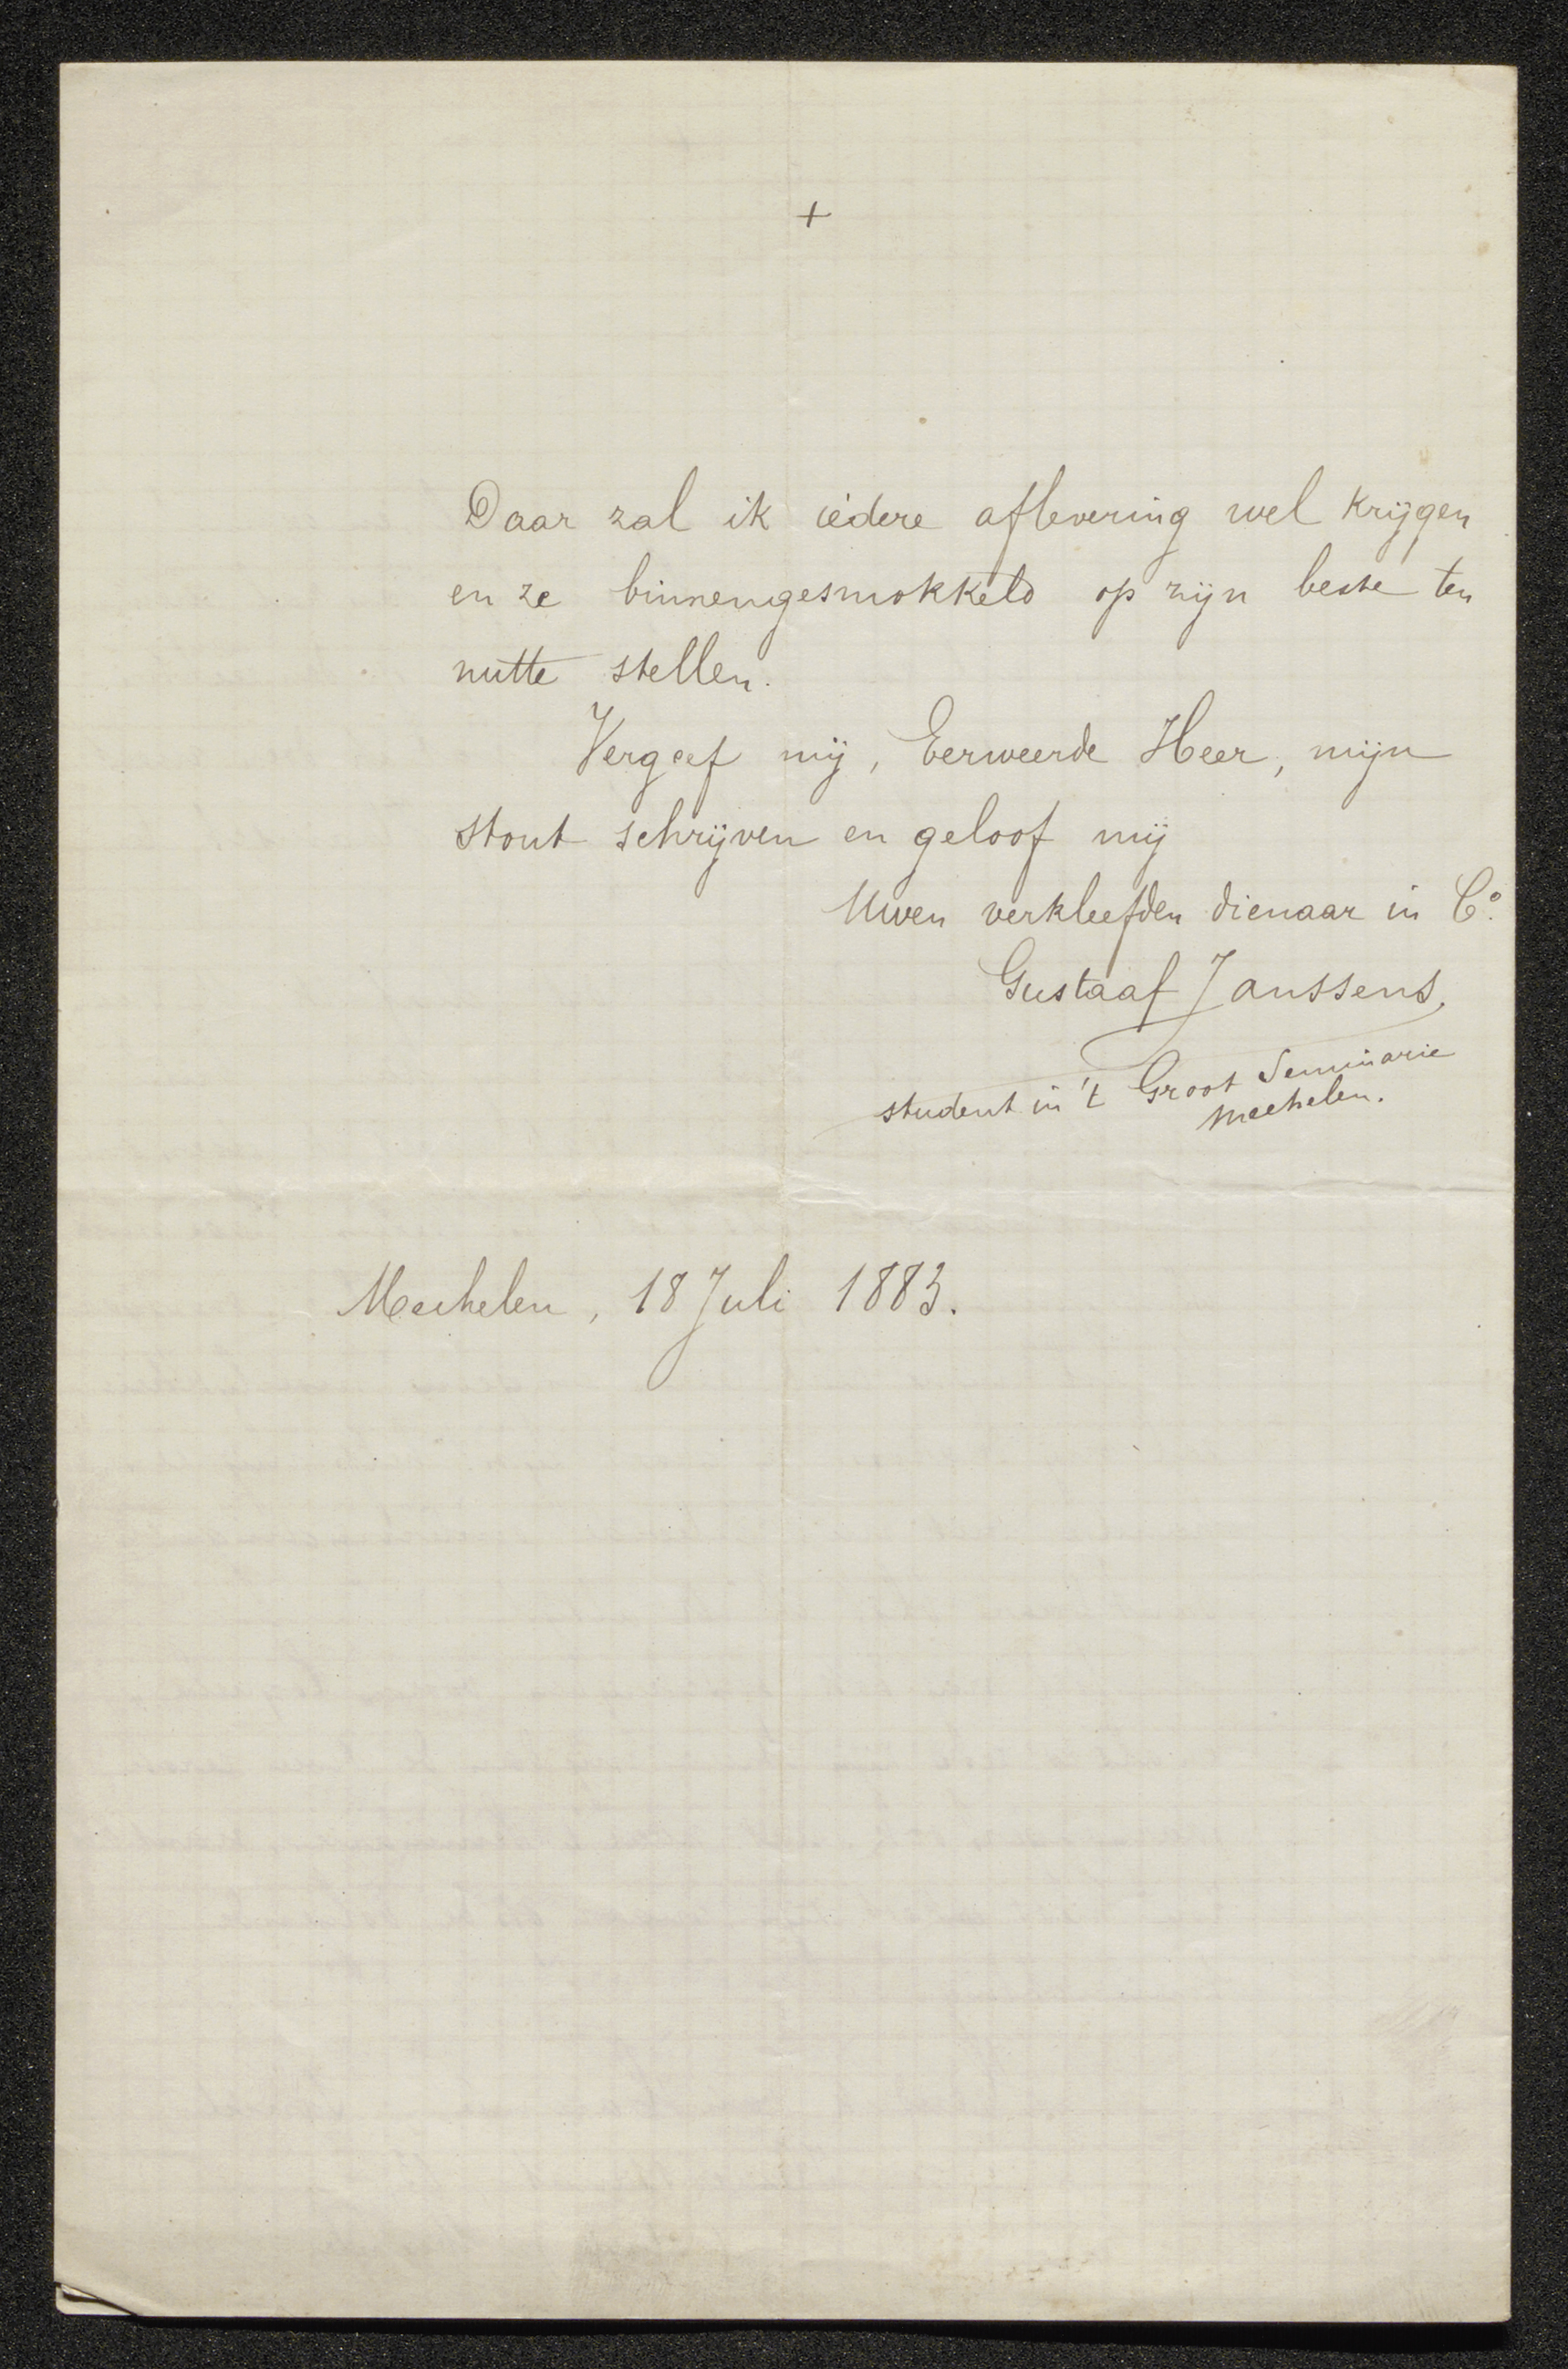 +
Daar zal ik iedere aflevering wel krijgen
en ze binnengesmokkeld op zijn beste ten
nutte stellen.
Vergeef mij, Eerweerde Heer, mijn
stout schrijven en geloof mij
Uwen verkleefden dienaar in C°.
Gustaaf Janssens,
student in 't Groot Seminarie
Mechelen.
Mechelen, 18 Juli 1883.